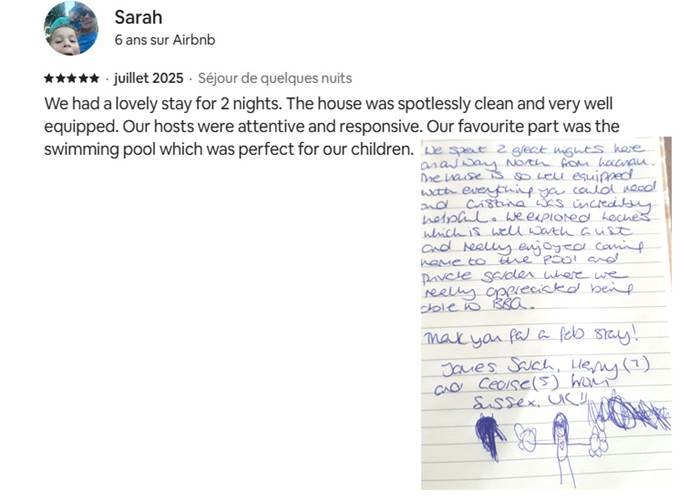 Sarah
6 ans sur Airbnb
★★★★★ · juillet 2025 · Séjour de quelques nuits
We had a lovely stay for 2 nights. The house was spotlessly clean and very well
equipped. Our hosts were attentive and responsive. Our favourite part was the
swimming pool which was perfect for our children.
We spent 2 great nights here
on our way North from
The house is so well equipped
with everything you could need
and Cristina was incredibly
helpful. We explored Loches
which is well worth a visit
and really enjoyed coming
home to the pool and
private garden where we
really appreciated being
able to BBQ.
Thank you for a fab stay!
James, Sarah, Henry (7)
and George (5) from
Sussex, UK!!